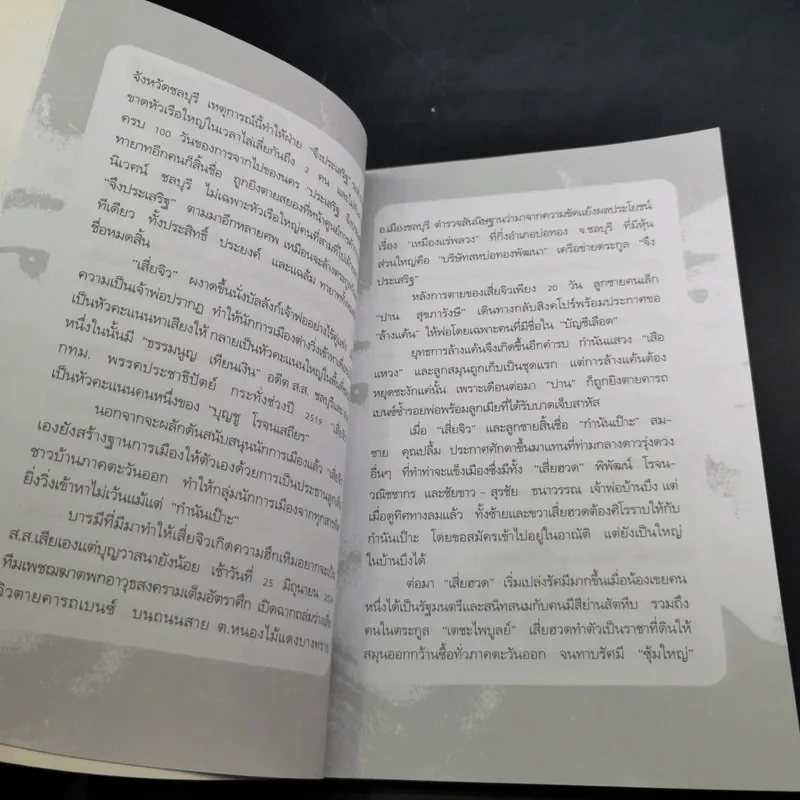 จังหวัดชลบุรี เหตุการณ์นี้ทำให้ฝ่าย "จึงประเสริฐ"
ขาดหัวเรือใหญ่ในเวลาไล่เลี่ยกันถึง 2 คน
ครบ 100 วันของการจากไปของนคร "ประเสริฐ
ทายาทอีกคนก็สิ้นชื่อ ถูกยิงตายสยองที่หน้าศูนย์การค้า
นิเวศน์ ชลบุรี ไม่เฉพาะหัวเรือใหญ่คนที่สามที่
"จึงประเสริฐ" ตามมาอีกหลายศพ เหมือนจะล้างตระกูล
ทีเดียว ทั้งประสิทธิ์ ประยงค์ และแฉล้ม
ชื่อหมดสิ้น
"เสี่ยจิว" ผงาดขึ้นนั่งบัลลังก์เจ้าพ่ออย่าง
ความเป็นเจ้าพ่อปรากฏ ทำให้นักการเมืองต่างวิ่งเข้าหา
เป็นหัวคะแนนหาเสียงให้ กลายเป็นหัวคะแนนใหญ่ใน
หนึ่งในนั้นมี "ธรรมนูญ เทียนเงิน" อดีต ส.ส. ชลบุรี
กทม. พรรคประชาธิปัตย์ กระทั่งช่วงปี 2519 "เสี่ยจิว"
เป็นหัวคะแนนคนหนึ่งของ "บุญชู โรจนเสถียร"
นอกจากจะผลักดันสนับสนุนนักการเมืองแล้ว "เสี่ยจิว"
เองยังสร้างฐานการเมืองให้ตัวเองด้วยการเป็นประธาน
ชาวบ้านภาคตะวันออก ทำให้กลุ่มนักการเมืองจากทุก
ยิ่งวิ่งเข้าหาไม่เว้นแม้แต่ "กำนันเป๊าะ"
บารมีที่มีมาทำให้เสี่ยจิวเกิดความฮึกเหิมอยากจะเป็น
ส.ส.เสียเองแต่บุญวาสนายังน้อย เช้าวันที่ 25 มิถุนายน
ทีมเพชฌฆาตพกอาวุธสงครามเต็มอัตราศึก เปิดฉากถล่มร่าง
จิวตายคารถเบนซ์ บนถนนสาย ต.หนองไม้แดงบางทราย
อ.เมืองชลบุรี ตำรวจสันนิษฐานว่ามาจากความขัดแย้งผลประโยชน์
เรื่อง "เหมืองแร่พลวง" ที่กิ่งอำเภอบ่อทอง จ.ชลบุรี ที่มีหุ้น
ส่วนใหญ่คือ "บริษัทสหบ่อทองพัฒนา" เครือข่ายตระกูล "จึง
ประเสริฐ"
หลังการตายของเสี่ยจิวเพียง 20 วัน ลูกชายคนเล็ก
"ปาน สุขภารังษี" เดินทางกลับสิงคโปร์พร้อมประกาศขอ
"ล้างแค้น" ให้พ่อโดยเฉพาะคนที่มีชื่อใน "บัญชีเลือด"
ยุทธการล้างแค้นจึงเกิดขึ้นอีกคำรบ กำนันแสวง "เสือ
แหวง" และลูกสมุนถูกเก็บเป็นชุดแรก แต่การล้างแค้นต้อง
หยุดชะงักแค่นั้น เพราะเดือนต่อมา "ปาน" ก็ถูกยิงตายคารถ
เบนซ์ซ้ำรอยพ่อพร้อมลูกเมียที่ได้รับบาดเจ็บสาหัส
เมื่อ "เสี่ยจิว" และลูกชายสิ้นชื่อ "กำนันเป๊าะ" สม-
ชาย คุณปลื้ม ประกาศศักดาขึ้นมาแทนที่ท่ามกลางดาวรุ่งดวง
อื่นๆ ที่ทำท่าจะแข็งเมืองซึ่งมีทั้ง "เสี่ยฮวด" พิพัฒน์ โรจน-
วณิชชากร และชัยขาว - สุรชัย ธนาวรรณ เจ้าพ่อบ้านบึง แต่
เมื่อดูทิศทางลมแล้ว ทั้งซ้ายและขวาเสี่ยฮวดต้องศิโรราบให้กับ
กำนันเป๊าะ โดยขอสมัครเข้าไปอยู่ในอาณัติ แต่ยังเป็นใหญ่
ในบ้านบึงได้
ต่อมา "เสี่ยฮวด" เริ่มเปล่งรัศมีมากขึ้นเมื่อน้องเขยคน
หนึ่งได้เป็นรัฐมนตรีและสนิทสนมกับคนมีสีย่านสัตหีบ รวมถึง
คนในตระกูล "เตชะไพบูลย์" เสี่ยฮวดทำตัวเป็นราชาที่ดินให้
สมุนออกกว้านซื้อทั่วภาคตะวันออก จนทาบรัศมี "ซุ้มใหญ่"